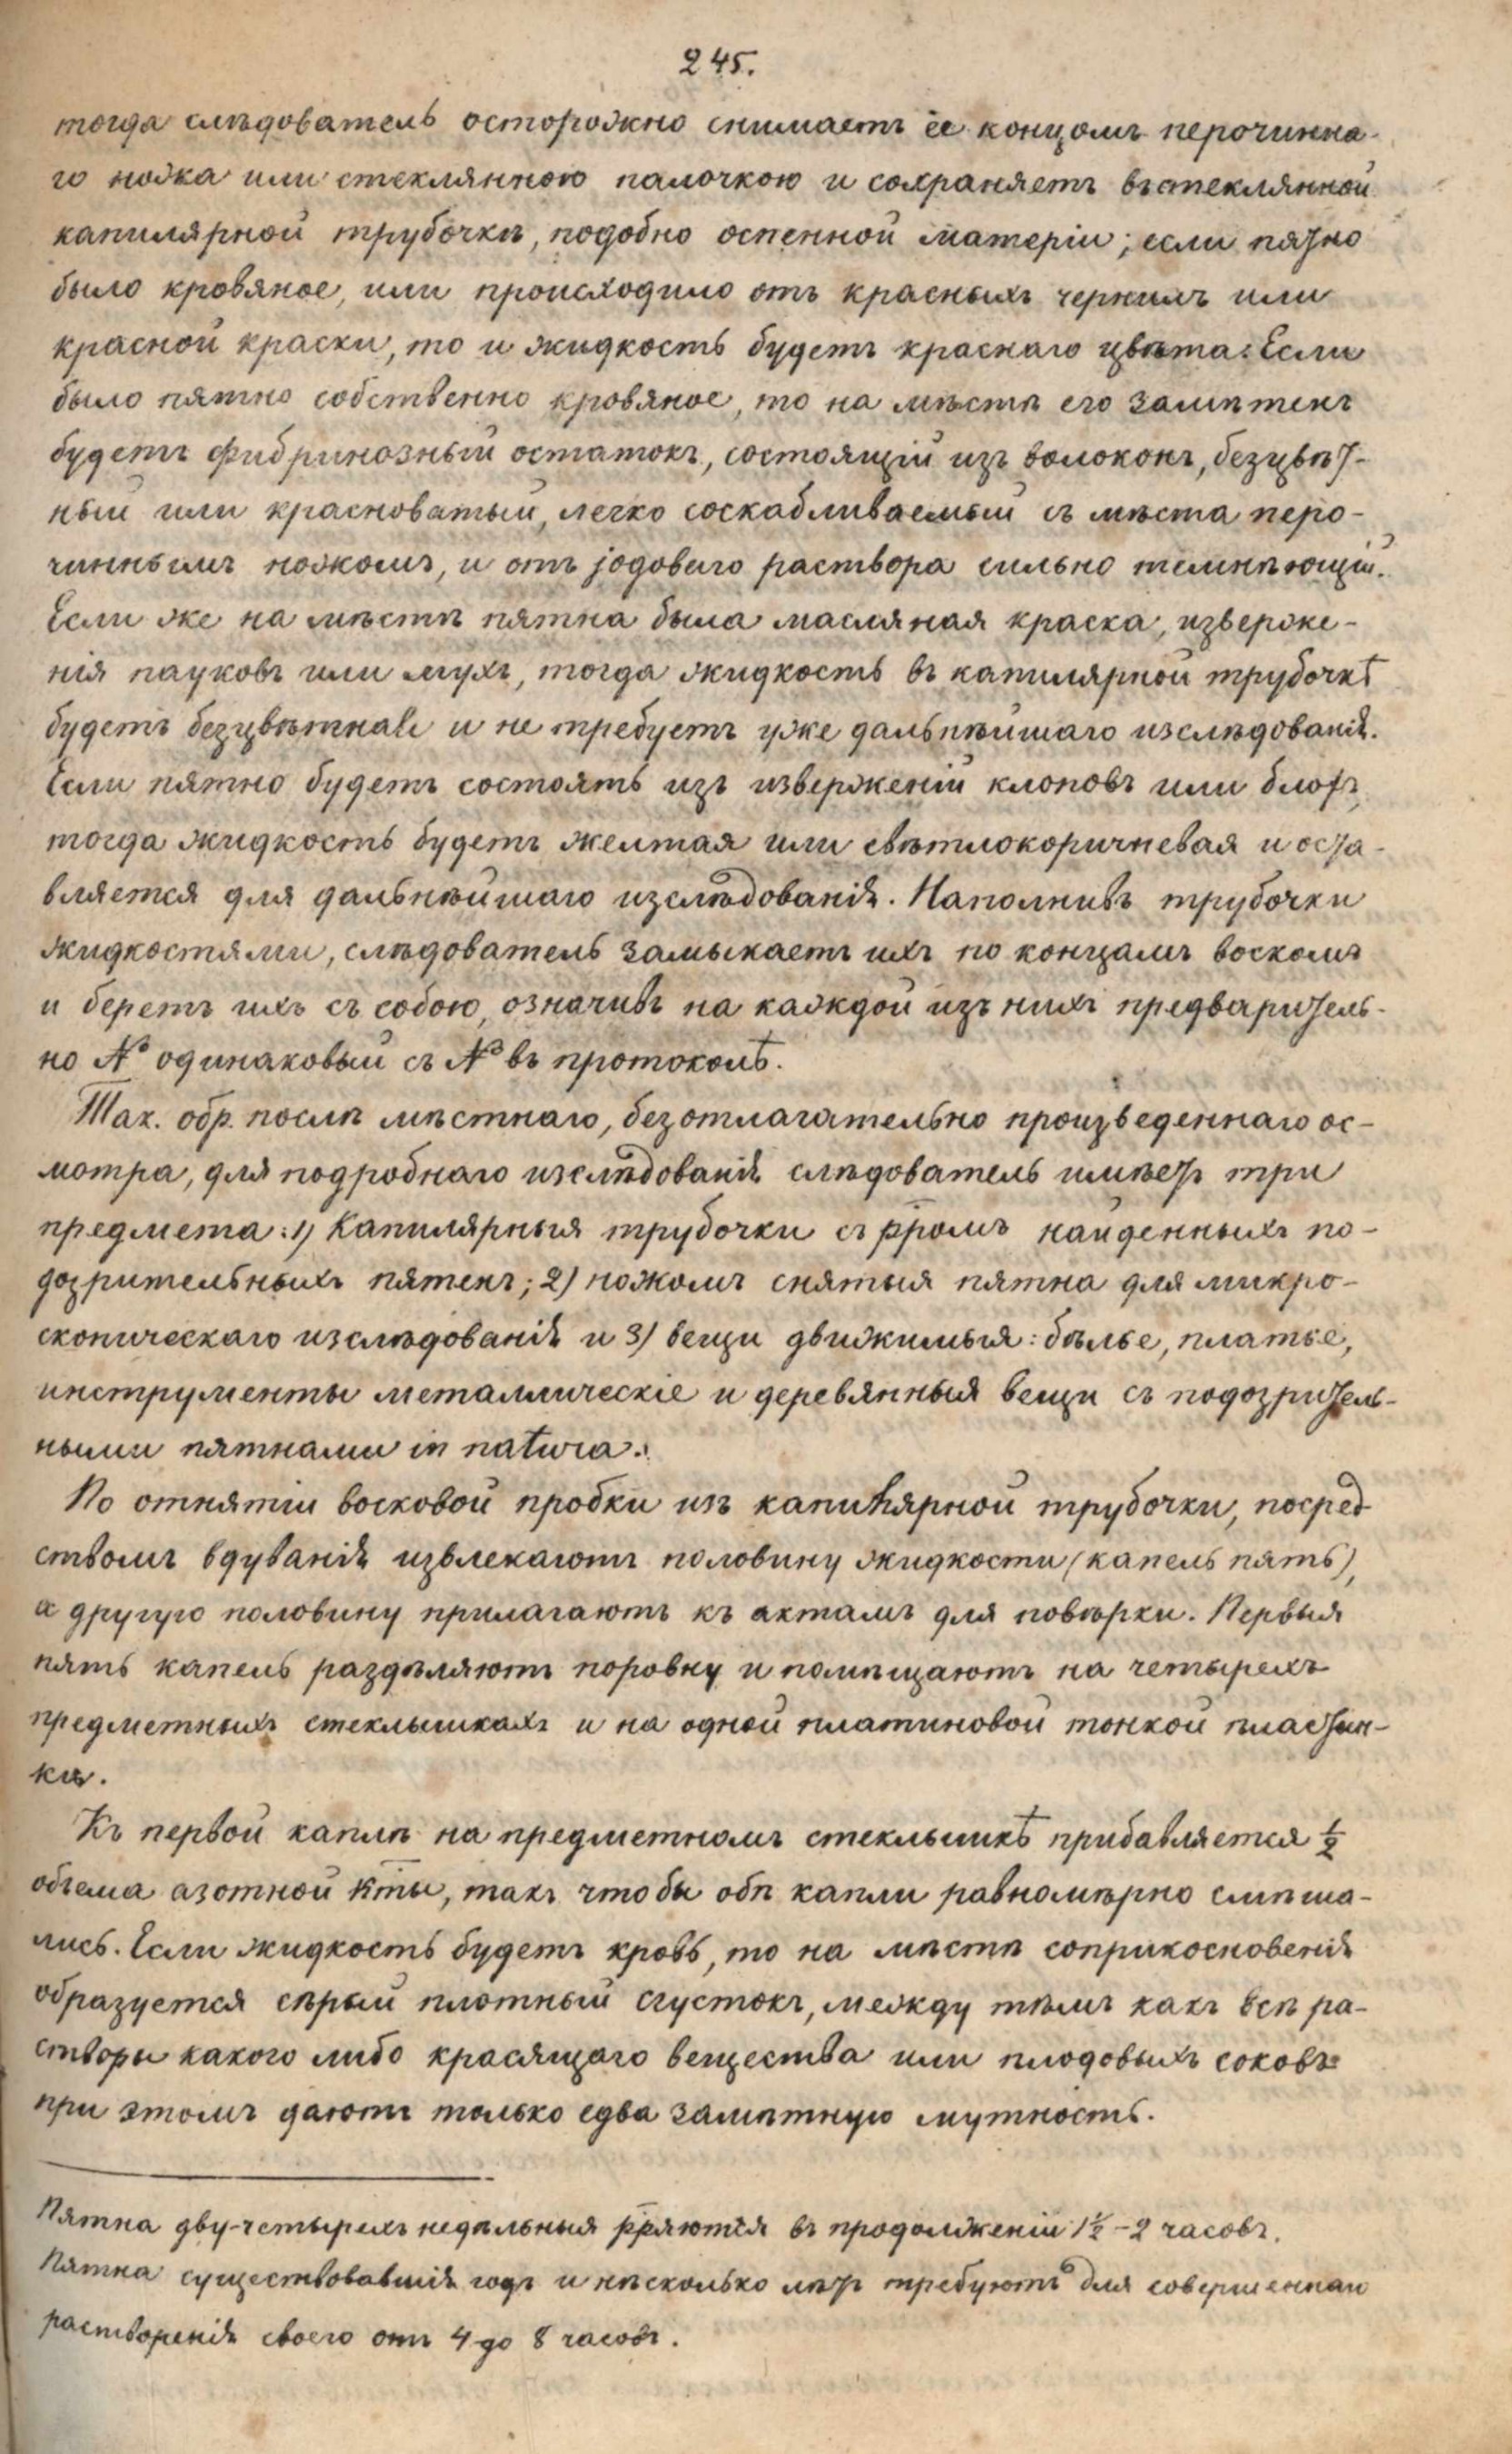 245.
тогда слѣдователь осторожно снимаетъ ее концомъ перочинна-
го ножка или стеклянною палочкою и сохраняетъ въ стеклянной
капилярной трубочкѣ, подобно оспенной матеріи; если пятно
было кровяное, или происходило отъ красныхъ чернилъ или
красной краски, то и жидкость будетъ краснаго цвѣта. Если
было пятно собственно кровяное, то на мѣстѣ его замѣтенъ
будетъ фибринозный остатокъ, состоящій изъ волоконъ, безцвѣт-
ный или красноватый, легко соскабливаемый съ мѣста перо-
чиннымъ ножкомъ, и отъ jодоваго раствора сильно темнѣющій.
Если же на мѣстѣ пятна была масляная краска, изверже-
нія пауковъ или мухъ, тогда жидкость въ капилярной трубочкѣ
будетъ безцвѣтная и не требуетъ уже дальнѣйшаго изслѣдованія.
Если пятно будетъ состоять изъ изверженій клоповъ или блохъ,
тогда жидкость будетъ желтая или свѣтлокоричневая и оста-
вляется для дальнѣйшаго изслѣдованія. Наполнивъ трубочки
жидкостями, слѣдователь замыкаетъ ихъ по концамъ воскомъ
и беретъ ихъ съ собою, означивъ на каждой изъ нихъ предваритель-
но № одинаковый съ № въ протоколѣ.
Так. обр. послѣ мѣстнаго, безотлагательно произведеннаго ос-
мотра, для подробнаго изслѣдованія слѣдователь имѣетъ три
предмета: 1) Капилярныя трубочки съ рромъ найденныхъ по-
дозрительныхъ пятенъ; 2) ножомъ снятыя пятна для микро-
скопическаго изслѣдованія и 3) вещи движимыя: бѣлье, платье,
инструменты металлическіе и деревянныя вещи съ подозритель-
ными пятнами in natura.
По отнятіи восковой пробки изъ капилярной трубочки, посред-
ствомъ вдуванія извлекаютъ половину жидкости (капель пять),
а другую половину прилагаютъ къ актамъ для повѣрки. Первыя
пять капель раздѣляютъ поровну и помѣщаютъ на четырехъ
предметныхъ стеклышкахъ и на одной платиновой тонкой пластин-
кѣ.
Къ первой каплѣ на предметномъ стеклышкѣ прибавляется ½
объема азотной кты, такъ чтобы обѣ капли равномѣрно смѣша-
лись. Если жидкость будетъ кровь, то на мѣстѣ соприкосновенія
образуется сѣрый плотный сгустокъ, между тѣмъ какъ всѣ ра-
створы какого либо красящаго вещества или плодовыхъ соковъ
при этомъ даютъ только едва замѣтную мутность.
Пятна дву-четырехъ недѣльныя рряются въ продолженіи 1½ - 2 часовъ.
Пятна существовавшія годъ и нѣсколько лѣтъ требуютъ для совершеннаго
растворенія своего отъ 4 до 8 часовъ.